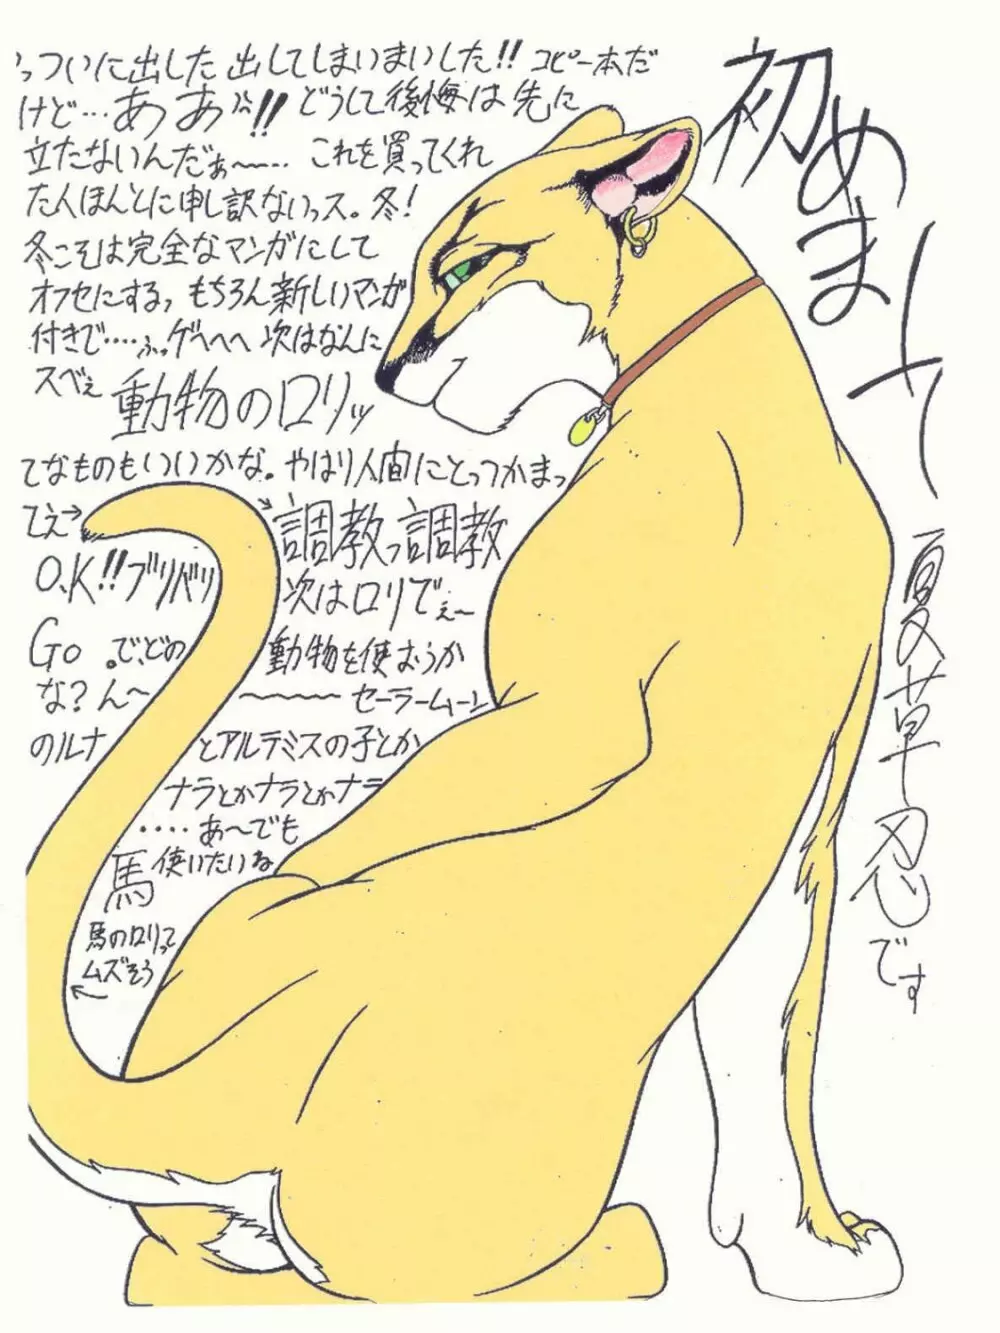 初めまして
夏草忍です
っついに出した出してしまいまいした!! コピー本だ
けど…あぁ゛!! どうして後悔は先に
立たないんだぁ〜…. これを買ってくれ
た人ほんとに申し訳ないっス。冬!
冬こそは完全なマンガにして
オフセにするっ もちろん新しいマンガ
付きで……ふっゲへへへ 次はなんに
スベぇ 動物のロリッ
てなものもいいかな。やはり人間にとっつかまっ
てえ→ →調教っ調教
O.K!!ブリバリ 次はロリでぇ〜
Go 。で、どの 動物を使おうか
な?ん〜 〜〜〜〜 セーラームーン
のルナ とアルテミスの子とか
ナラとかナラとかナラ
‥‥あ〜でも
馬 使いたいね
馬のロリって
ムズそう
←